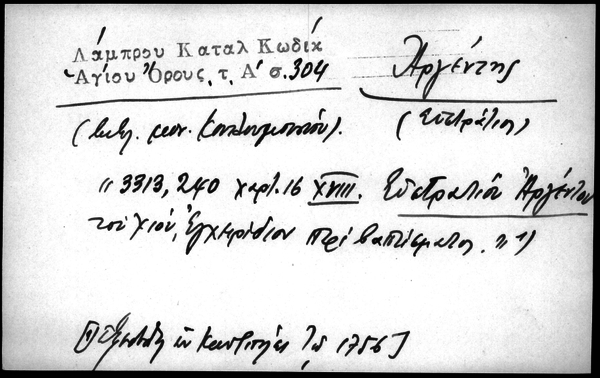 Λάμπρου Καταλ Κωδίκ
Ἁγίου Ὄρους, τ. Α΄ σ. 304
Ἀργέντης
(Βιβλ. μον. Κουτλουμουσίου).
(Εὐστράτιος)
"3313, 240 χαρτ. 16 XVIII. Εὐστρατίου Ἀργέντου
τοῦ Χίου, Ἐγχειρίδιον περὶ βαπτίσματος."
ἐν 1756]